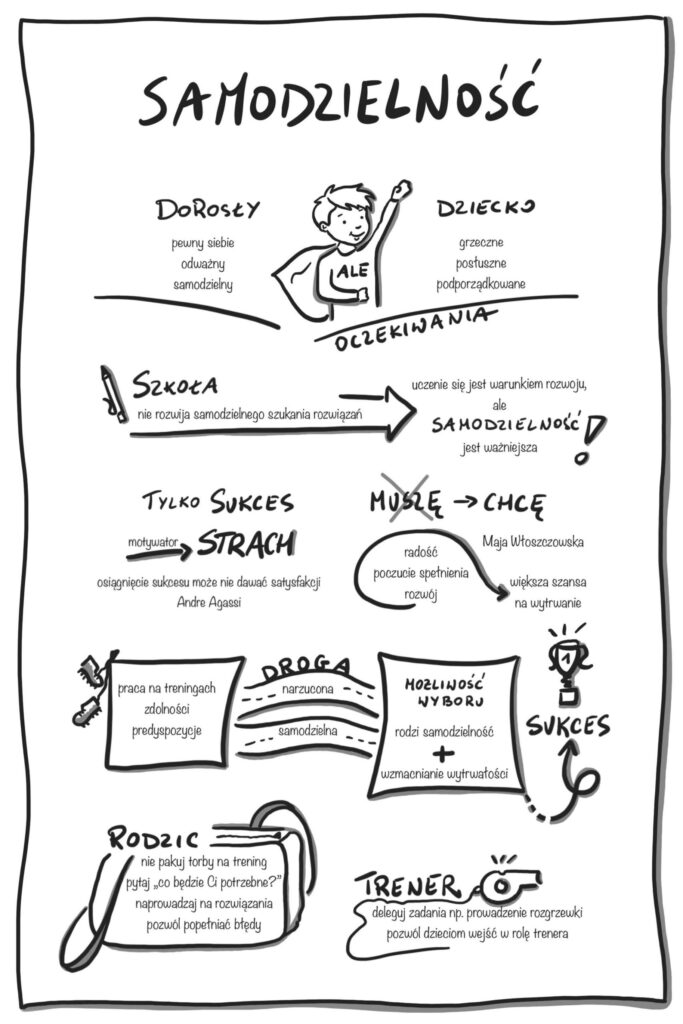 SAMODZIELNOŚĆ
DOROSŁY
pewny siebie
odważny
samodzielny
ALE
DZIECKO
grzeczne
posłuszne
podporządkowane
OCZEKIWANIA
SZKOŁA
nie rozwija samodzielnego szukania rozwiązań
uczenie się jest warunkiem rozwoju,
ale
SAMODZIELNOŚĆ!
jest ważniejsza
TYLKO SUKCES
motywator STRACH
osiągnięcie sukcesu może nie dawać satysfakcji
Andre Agassi
MUSZĘ → CHCĘ
radość
poczucie spełnienia
rozwój
Maja Włoszczowska
większa szansa
na wytrwanie
praca na treningach
zdolności
predyspozycje
DROGA
narzucona
samodzielna
MOŻLIWOŚĆ
WYBORU
rodzi samodzielność
+
wzmacnianie wytrwałości
1
SUKCES
RODZIC
nie pakuj torby na trening
pytaj „co będzie Ci potrzebne?"
naprowadzaj na rozwiązania
pozwól popełniać błędy
TRENER
deleguj zadania np. prowadzenie rozgrzewki
pozwól dzieciom wejść w rolę trenera